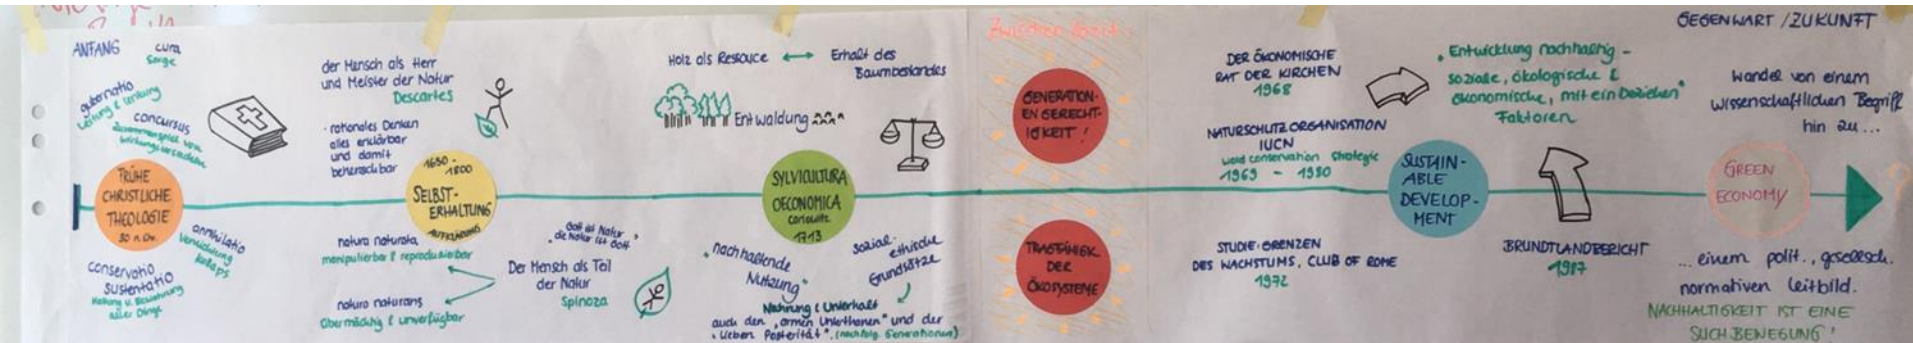 ANFANG
cura
Sorge
gubernatio
Leitung & Lenkung
concursus
Zusammenspiel von
FRÜHE
CHRISTLICHE
THEOLOGIE
30 n. Chr.
annihilatio
Vernichtung
Kollaps
conservatio
sustentatio
Haltung u. Bewahrung
aller Dinge
der Mensch als Herr
und Meister der Natur
Descartes
· rationales Denken
alles erklärbar
und damit
beherrschbar
1650 -
1800
SELBST-
ERHALTUNG
AUFKLÄRUNG
natura naturata
manipulierbar & reproduzierbar
natura naturans
übermächtig & unverfügbar
"Gott ist Natur,
die Natur ist Gott."
Der Mensch als Teil
der Natur
Spinoza
Holz als Ressource ↔ Erhalt des
Baumbestandes
Entwaldung
SYLVICULTURA
OECONOMICA
Carlowitz
1713
"nachhaltende
Nutzung"
sozial-
ethische
Grundsätze
Nahrung & Unterhalt
auch den "armen Unterthanen" und der
"lieben Posterität", (nachfolg. Generationen)
Zwischenfazit:
GENERATION-
EN GERECHT-
IGKEIT!
TRAGFÄHIGK.
DER
ÖKOSYSTEME
DER ÖKONOMISCHE
RAT DER KIRCHEN
1968
NATURSCHUTZORGANISATION
IUCN
world conservation strategie
1969 - 1980
STUDIE: GRENZEN
DES WACHSTUMS, CLUB OF ROME
1972
"Entwicklung nachhaltig -
soziale, ökologische &
ökonomische, mit ein beziehen"
Faktoren
SUSTAIN-
ABLE
DEVELOP-
MENT
BRUNDTLANDBERICHT
1987
GEGENWART / ZUKUNFT
Wandel von einem
wissenschaftlichen Begriff
hin zu ...
GREEN
ECONOMY
?
... einem polit., gesellsch.
normativen Leitbild.
NACHHALTIGKEIT IST EINE
SUCHBEWEGUNG!